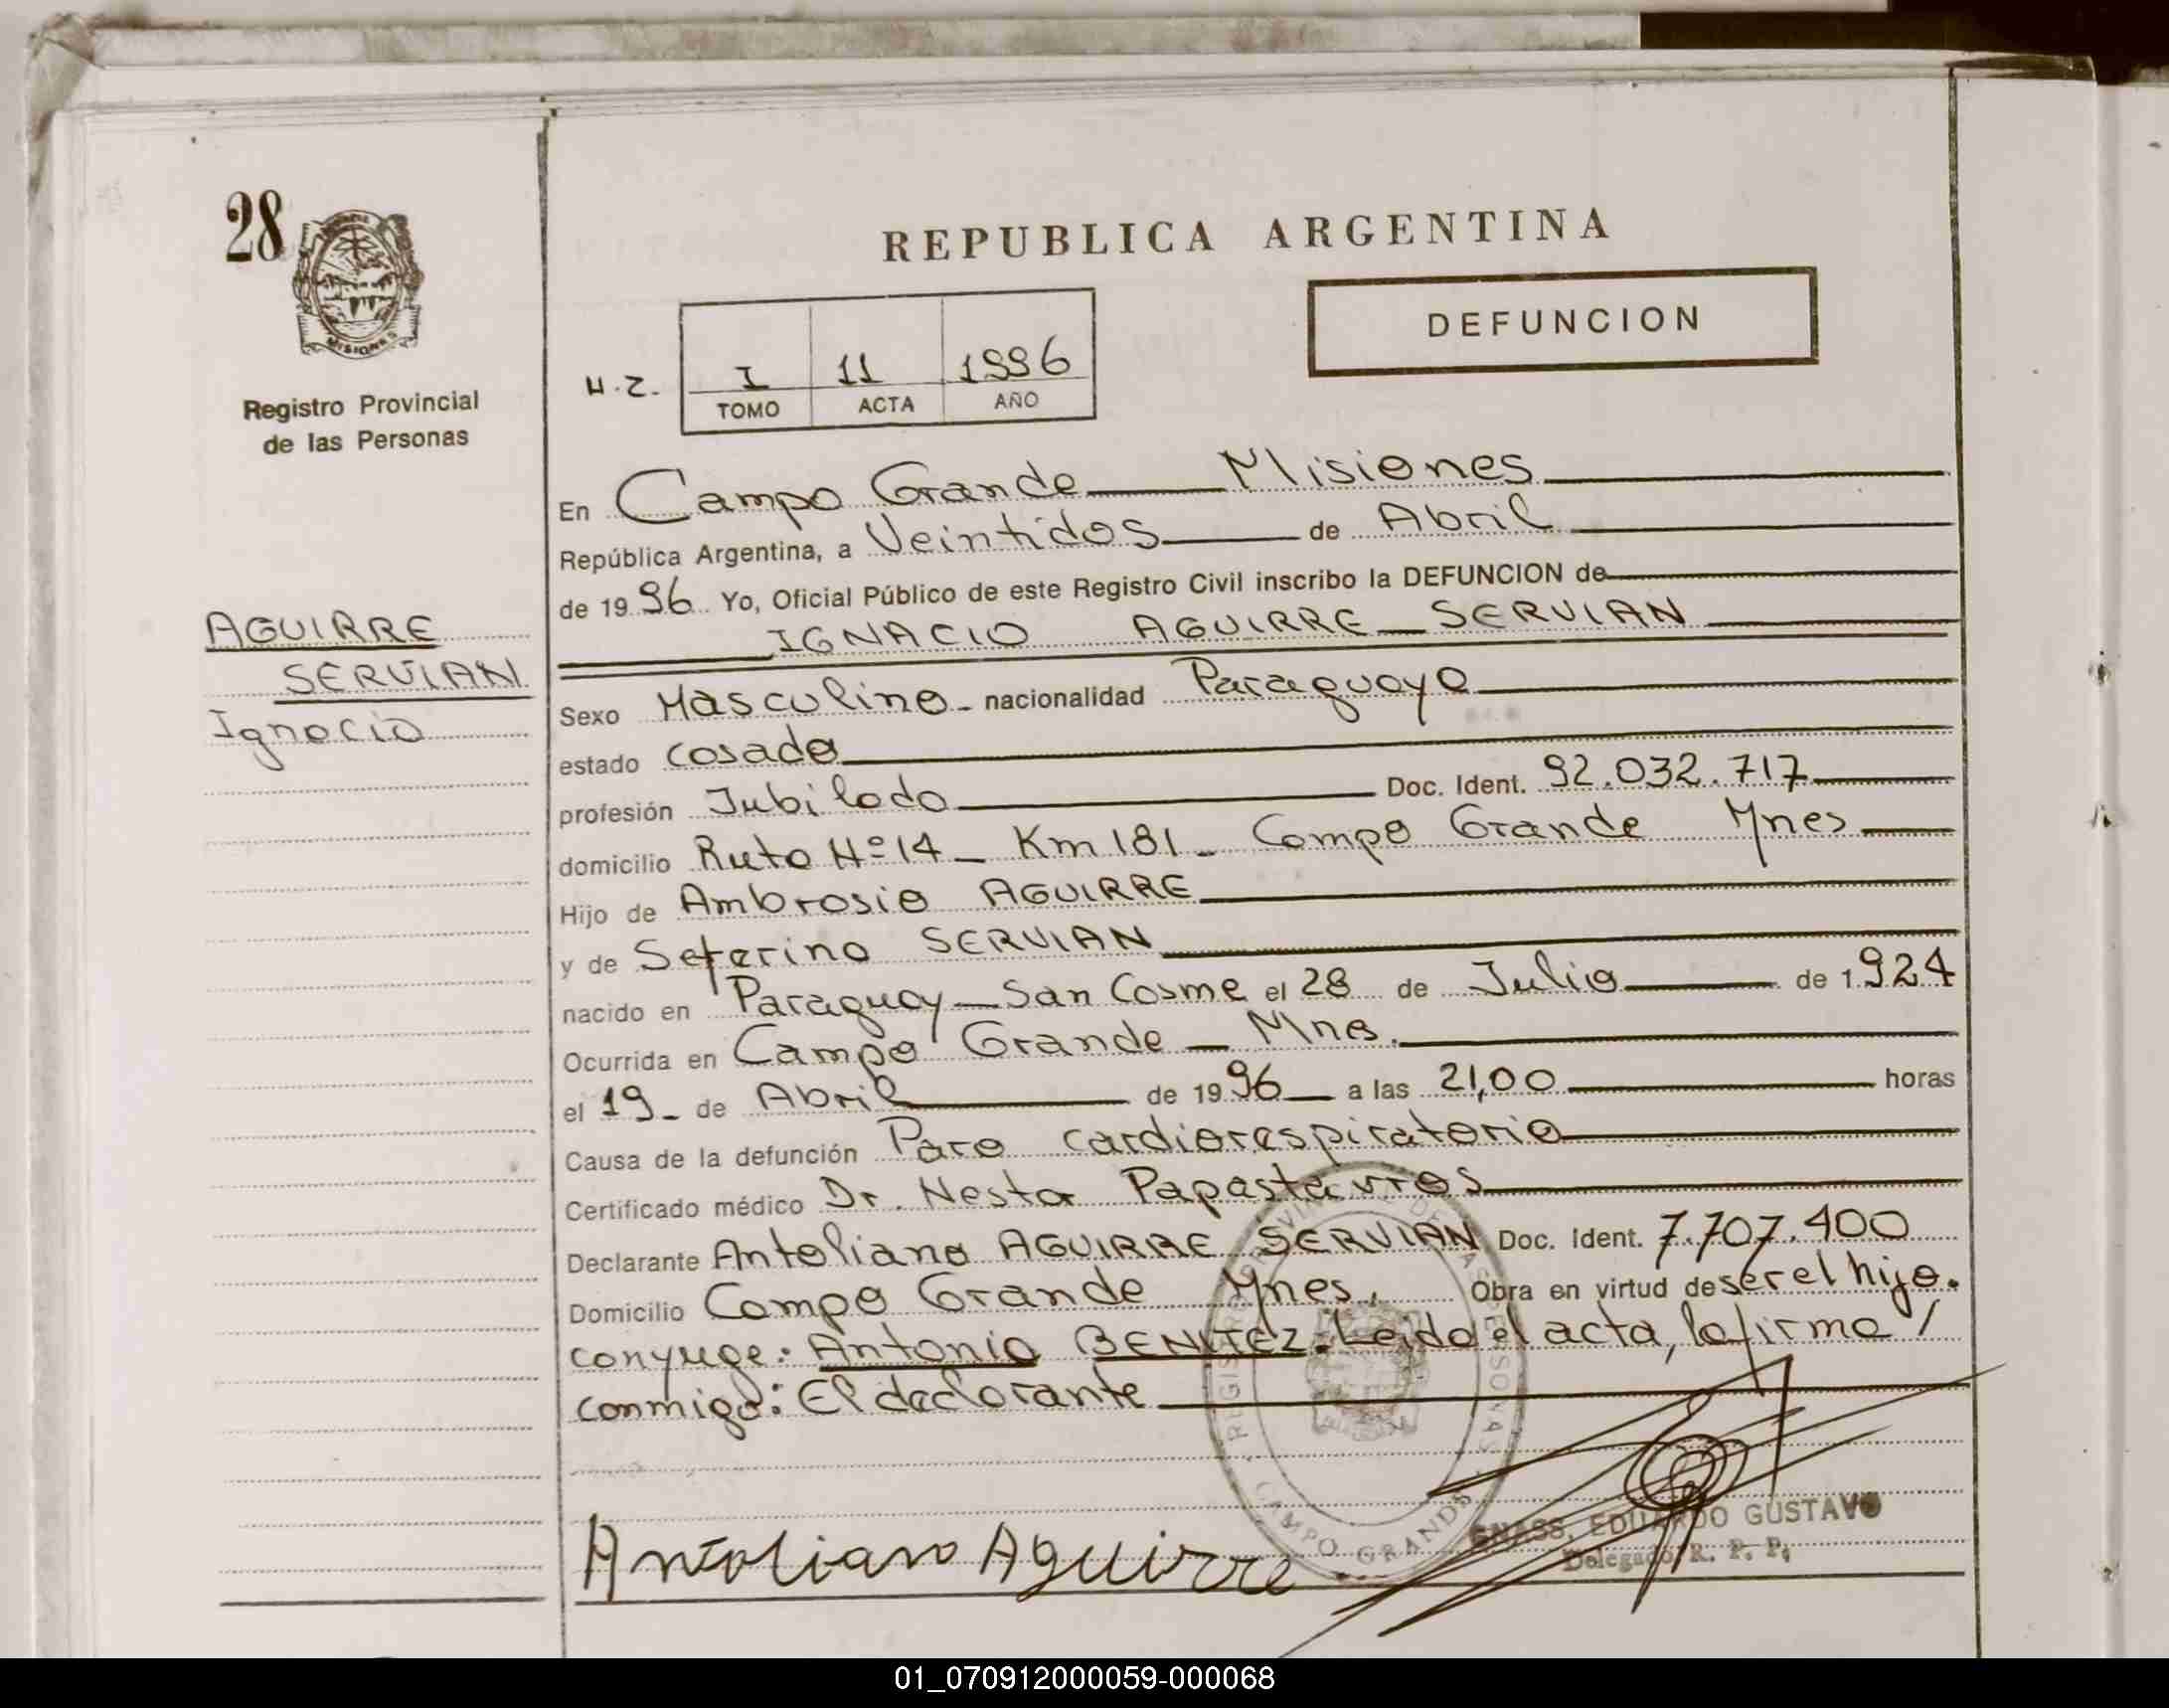 28
MISIONES
Registro Provincial
de las Personas
REPUBLICA ARGENTINA
DEFUNCION
N.Z.
I 11 1996
TOMO ACTA AÑO
En Campo Grande Misiones
República Argentina, a Veintidos de Abril
de 1996 Yo, Oficial Público de este Registro Civil inscribo la DEFUNCION de
IGNACIO AGUIRRE SERVIAN
AGUIRRE
SERVIAN
Ignacio
Sexo Masculino nacionalidad Paraguaya
estado casado
profesión Jubilado Doc. Ident. 92.032.717
domicilio Ruta Nº 14 - Km 181 - Campo Grande Mnes
Hijo de Ambrosio AGUIRRE
y de Seferina SERVIAN
nacido en Paraguay - San Cosme el 28 de Julio de 1924
Ocurrida en Campo Grande - Mnes.
el 19 de Abril de 1996 a las 21,00 horas
Causa de la defunción Paro cardiorespiratorio
Certificado médico Dr. Nestor Papastavros
Declarante Antoliano AGUIRRE SERVIAN Doc. Ident. 7.707.400
Domicilio Campo Grande Mnes. Obra en virtud de ser el hijo.
conyuge: Antonia BENITEZ. Leida el acta, la firma /
conmigo: El declarante
REGISTRO PROVINCIAL DE LAS PERSONAS
CAMPO GRANDE
Antoliano Aguirre
GNASS, EDUARDO GUSTAVO
Delegado R. P. P.
01_070912000059-000068